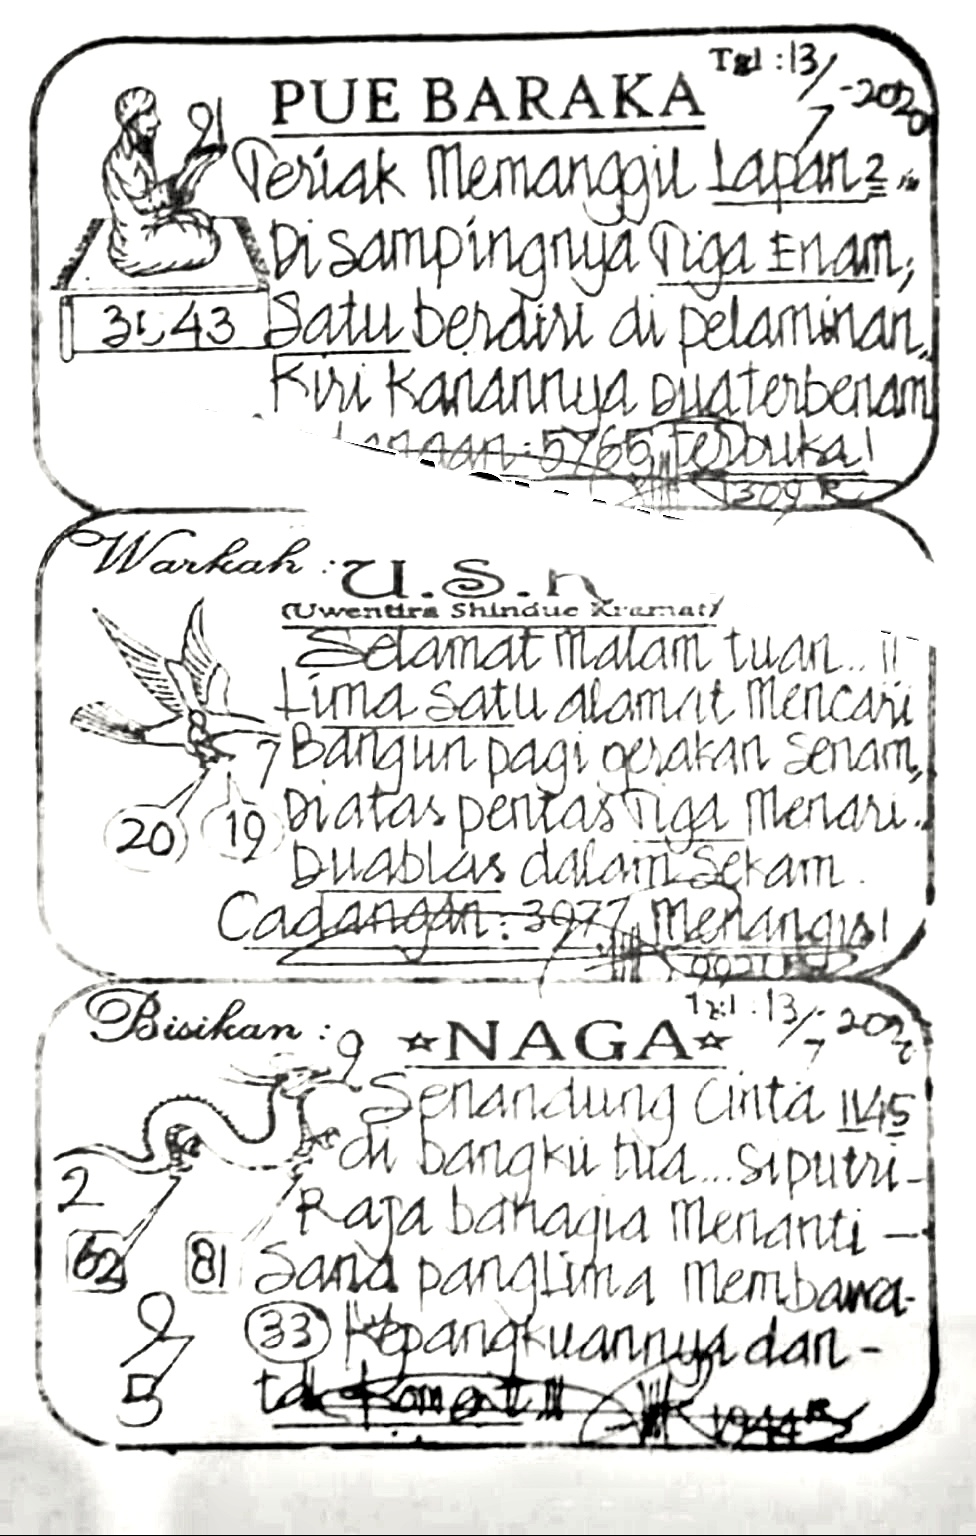 PUE BARAKA
Tgl : 13/7-2020
Teriak Memanggil Lapan2
Disampingnya Tiga Enam,
Satu berdiri di pelaminan..
Kiri Kanannya Dua terbenam
5765 Terbuka!
1309
43
Warkah : U.S.K
(Uwentira Shindue Kramat)
Selamat Malam tuan.. !!
Lima Satu alamat Mencari
Bangun pagi gerakan Senam,
Diatas pentas Tiga Menari.
Duablas dalam Sekam.
Cadangan : 3977 Menangis!
7
20
19
Bisikan : ☆NAGA☆
Tgl : 13/7-2020
Senandung Cinta 1145
di bangku tua...siputri-
Raja bahagia Menanti -
Sana pangLima Membawa-
33 Kepangkuannya dan -
tak Koment !!!
1944
9
2
62
81
9
5